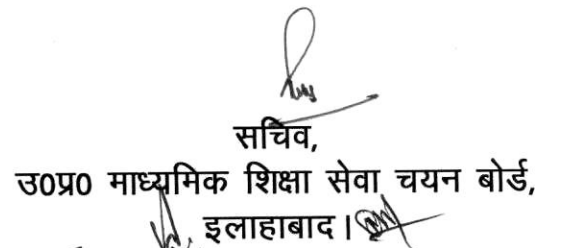 सचिव,
उ0प्र0 माध्यमिक शिक्षा सेवा चयन बोर्ड,
इलाहाबाद।